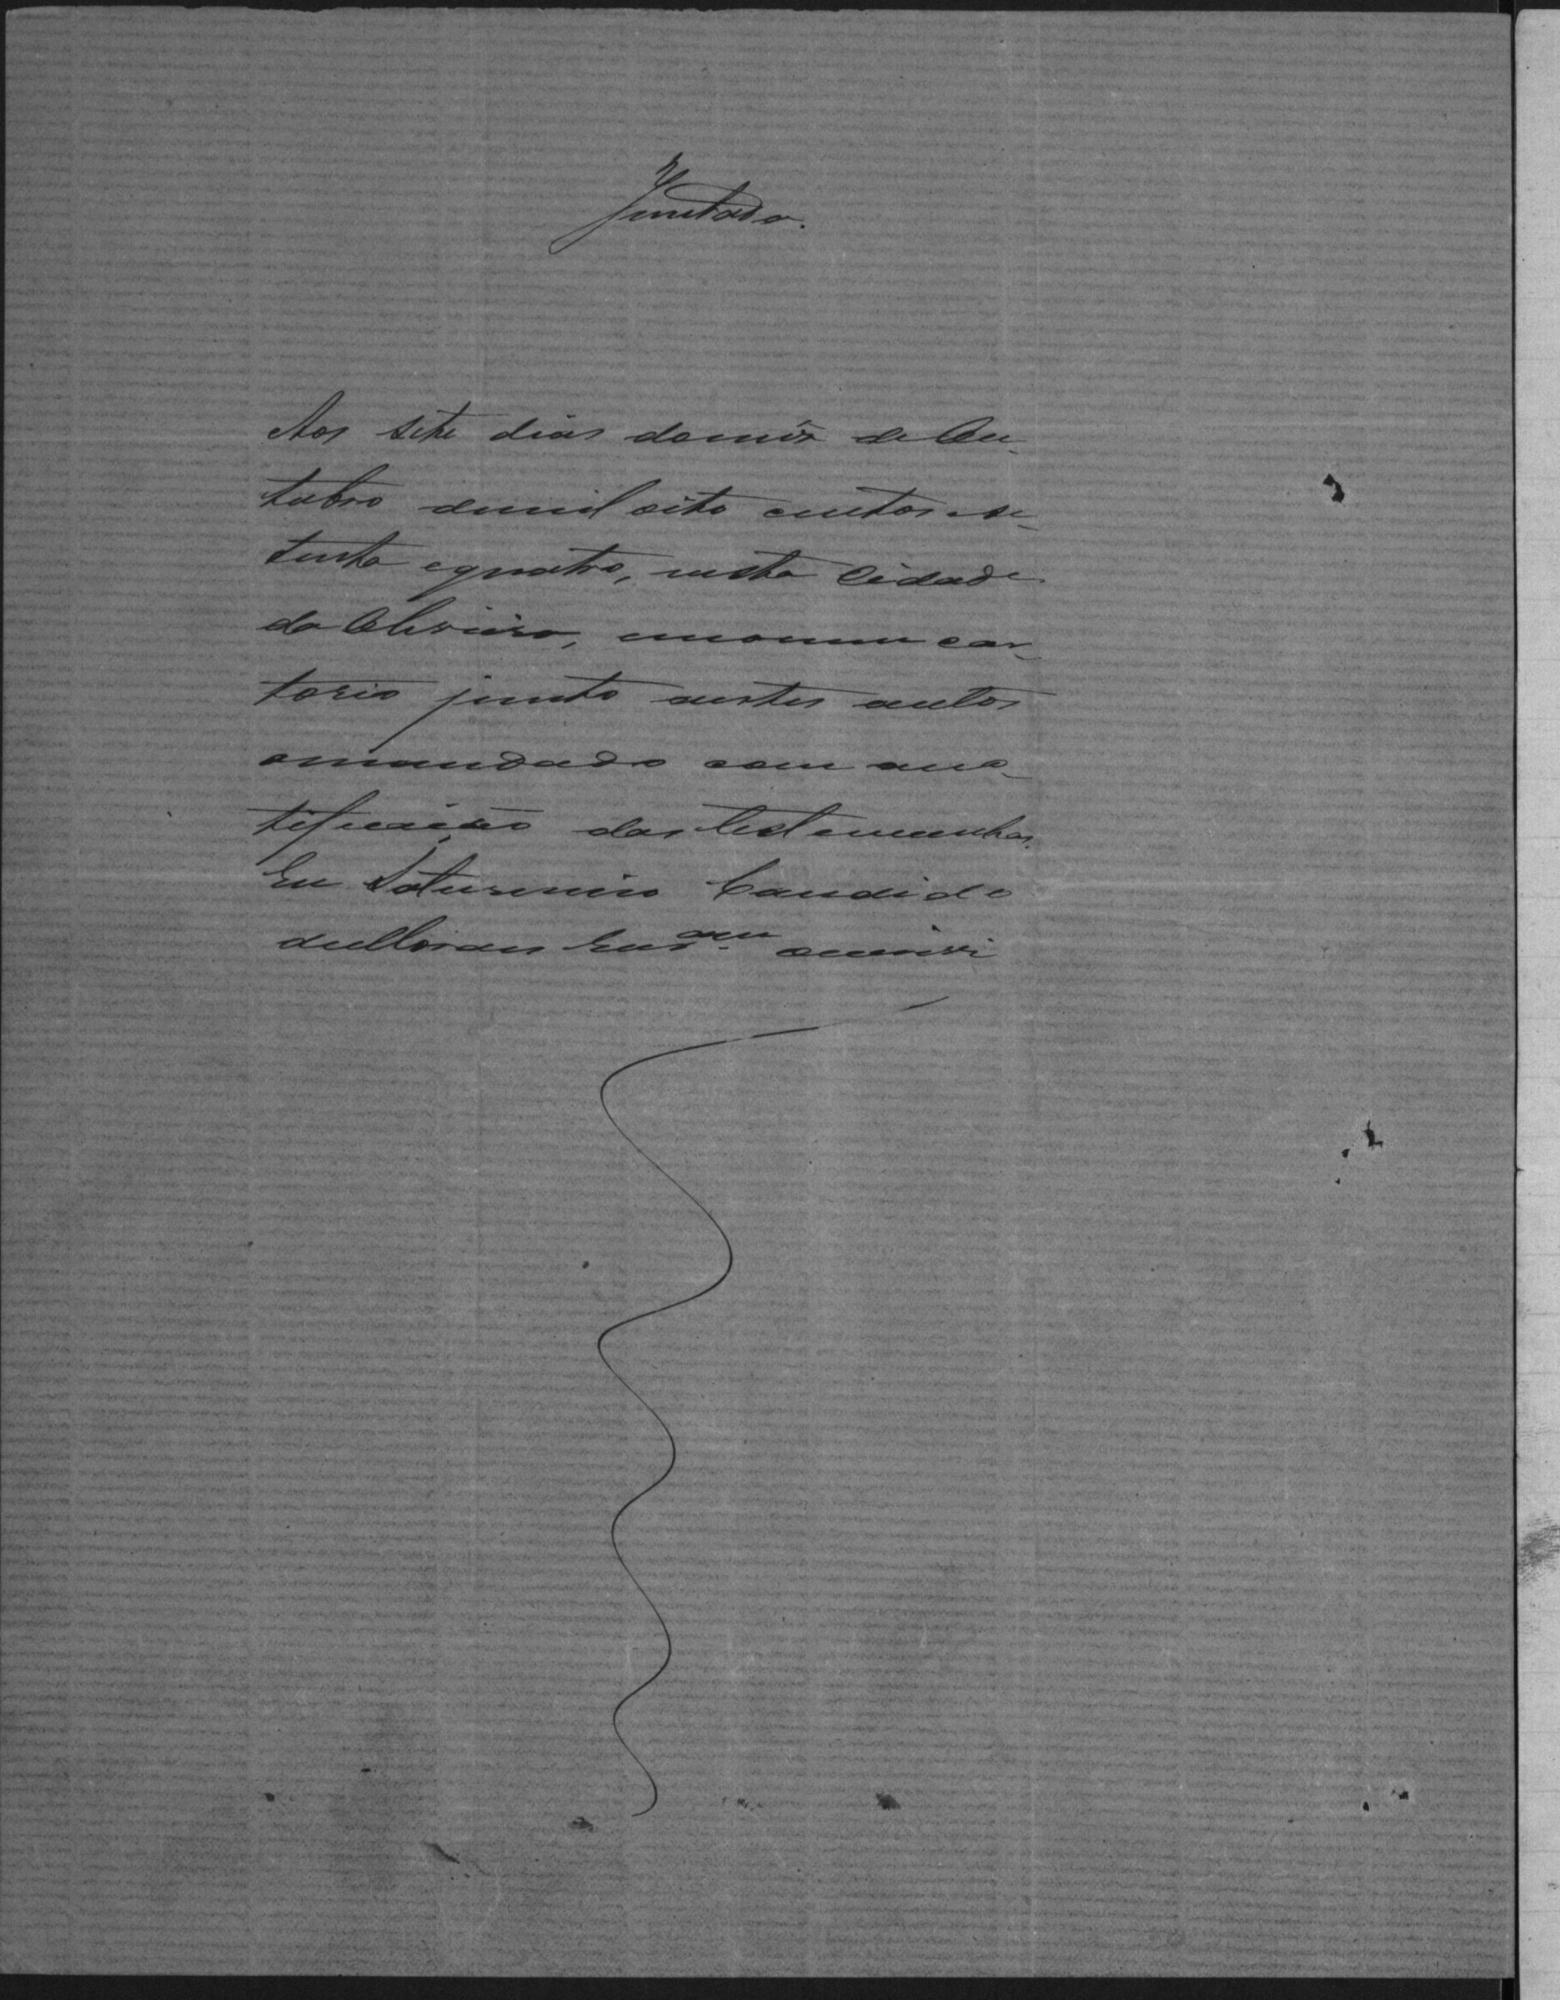 Juntada.
Aos sete dias domês de Ou-
tubro demil oito centos se-
tenta equatro, nesta Cidade
da Oliveira, emomeu car-
torio junto aestes autos
omandado com ano-
tificação das testemunhas.
Eu Saturnino Candido
escrivi